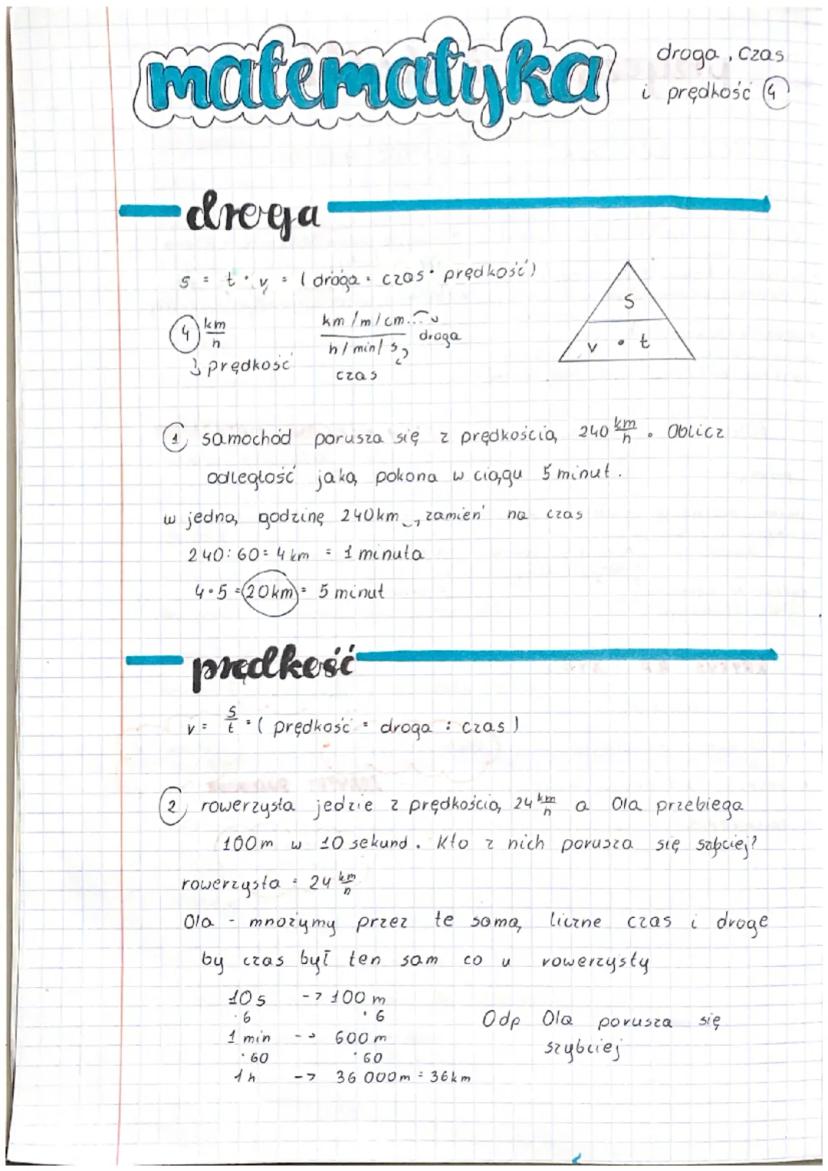 matematyka
droga, czas
i prędkość (4)
droga
s = t · v = (droga = czas · prędkość)
s
v · t
(4) km/h
km/m/cm... droga
h/min/s
↳ prędkość
czas
(1) samochód porusza się z prędkością 240 km/h. Oblicz
odległość jaką pokona w ciągu 5 minut.
w jedną godzinę 240km → zamień na czas
240:60=4km = 1 minuta
4·5=20km = 5 minut
prędkość
v = s/t = (prędkość = droga : czas)
(2) rowerzysta jedzie z prędkością 24 km/h a Ola przebiega
100m w 10 sekund. Kto z nich porusza się szbciej?
rowerzysta = 24 km/h
Ola - mnożymy przez te samą liczne czas i droge
by czas był ten sam co u rowerzysty
10s -> 100 m
·6 ·6
1 min -> 600 m
·60 ·60
1h -> 36 000m = 36km
Odp Ola porusza się
szybciej